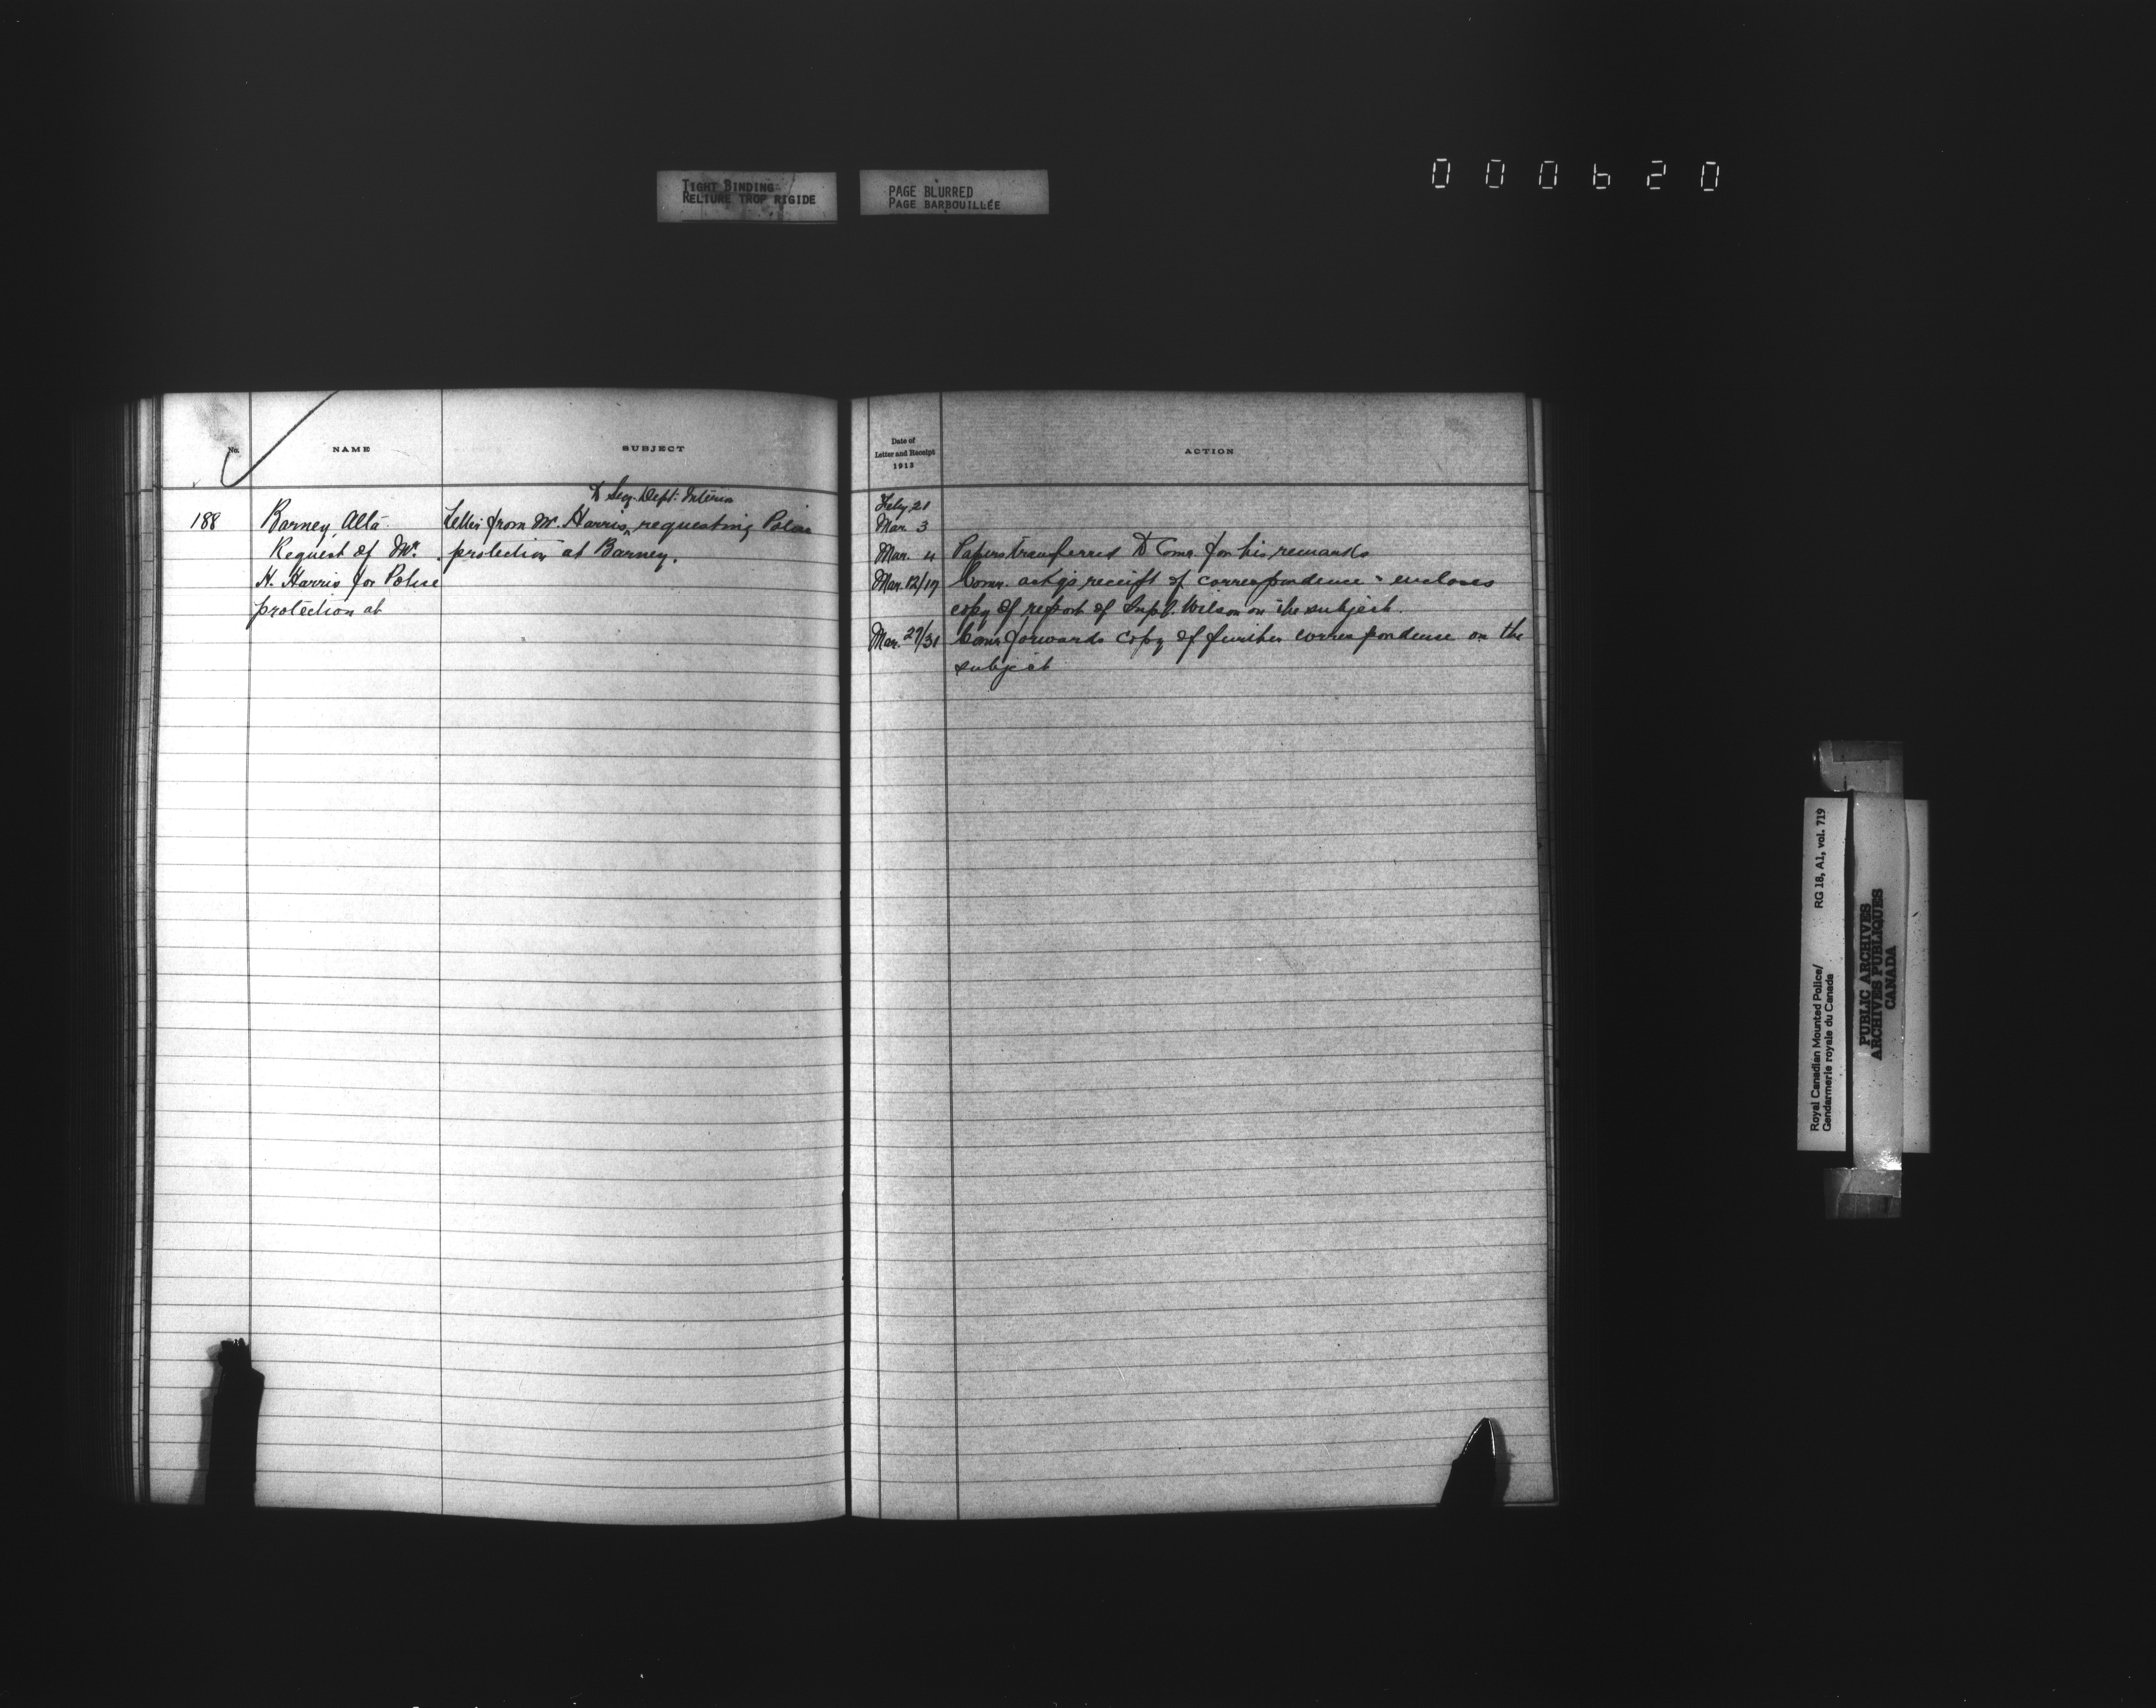 TIGHT BINDING
RELIURE TROP RIGIDE
PAGE BLURRED
PAGE BARBOUILLÉE
000620
No.
NAME
SUBJECT
188
Barney, Alta.
Request of Mr.
H. Harris for Police
protection at
to Secy. Dept. Interior
Letter from Mr. Harris, requesting Police
protection at Barney.
Date of
Letter and Receipt
1913
ACTION
Feby. 21
Mar. 3
Mar. 4 Papers transferred to Comr. for his remarks
Mar. 12/17 Comr. ackgs receipt of correspondence & encloses
copy of report of Supt. Wilson on the subject.
Mar. 27/31 Comr. forwards copy of further correspondence on the
subject
Royal Canadian Mounted Police/ RG 18, A1, vol. 719
Gendarmerie royale du Canada
PUBLIC ARCHIVES
ARCHIVES PUBLIQUES
CANADA